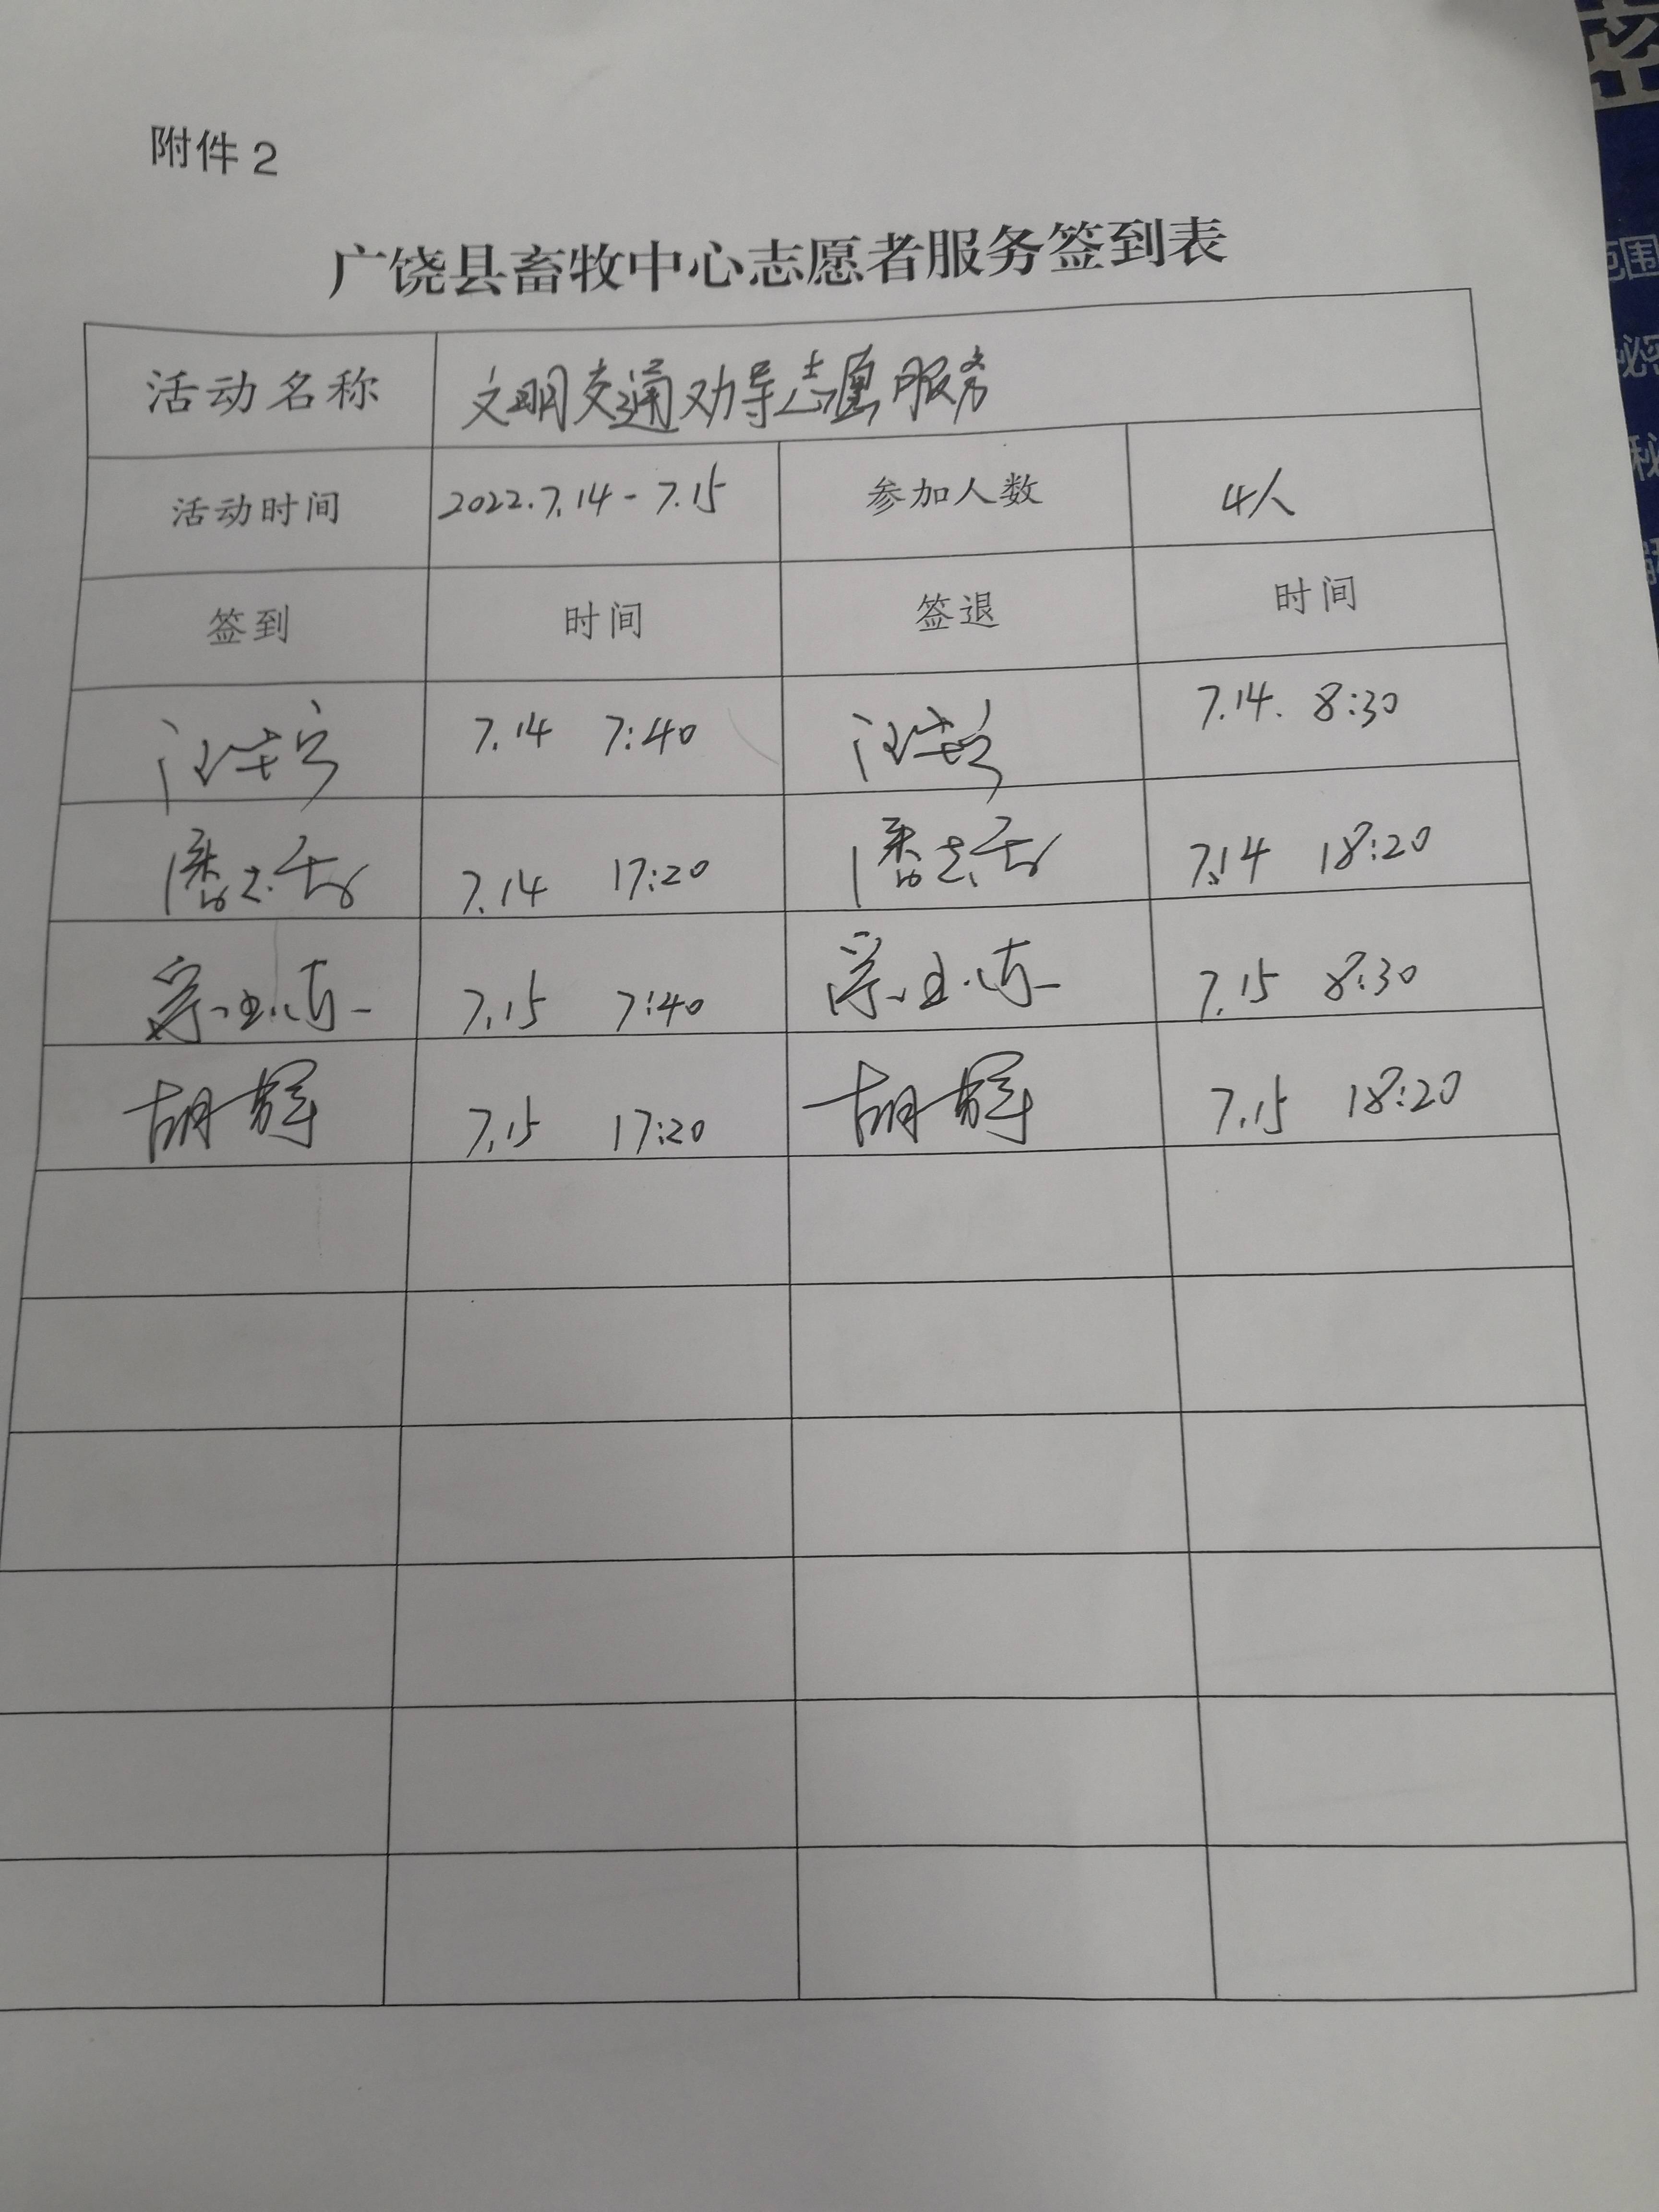 附件2
广饶县畜牧中心志愿者服务签到表
活动名称 文明交通劝导志愿服务
活动时间 2022.7.14-7.15 参加人数 4人
签到 时间 签退 时间
7.14 7:40 7.14. 8:30
7.14 17:20 7.14 18:20
7.15 7:40 7.15 8:30
胡辉 7.15 17:20 胡辉 7.15 18:20
范围
秘密
秘